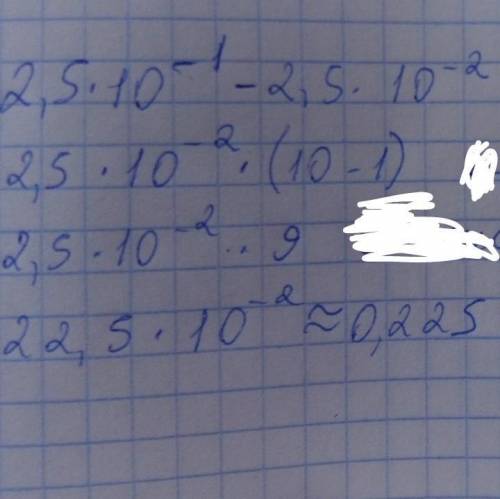 2,5·10⁻¹ - 2,5· 10⁻²
2,5 · 10⁻² · (10 - 1)
2,5 · 10⁻² · 9
22,5 · 10⁻² ≈ 0,225